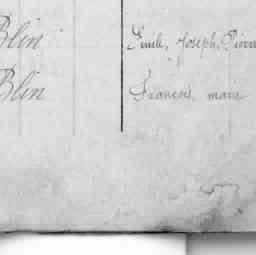 Blin Emile, Joseph, Pierre
Blin François, marie